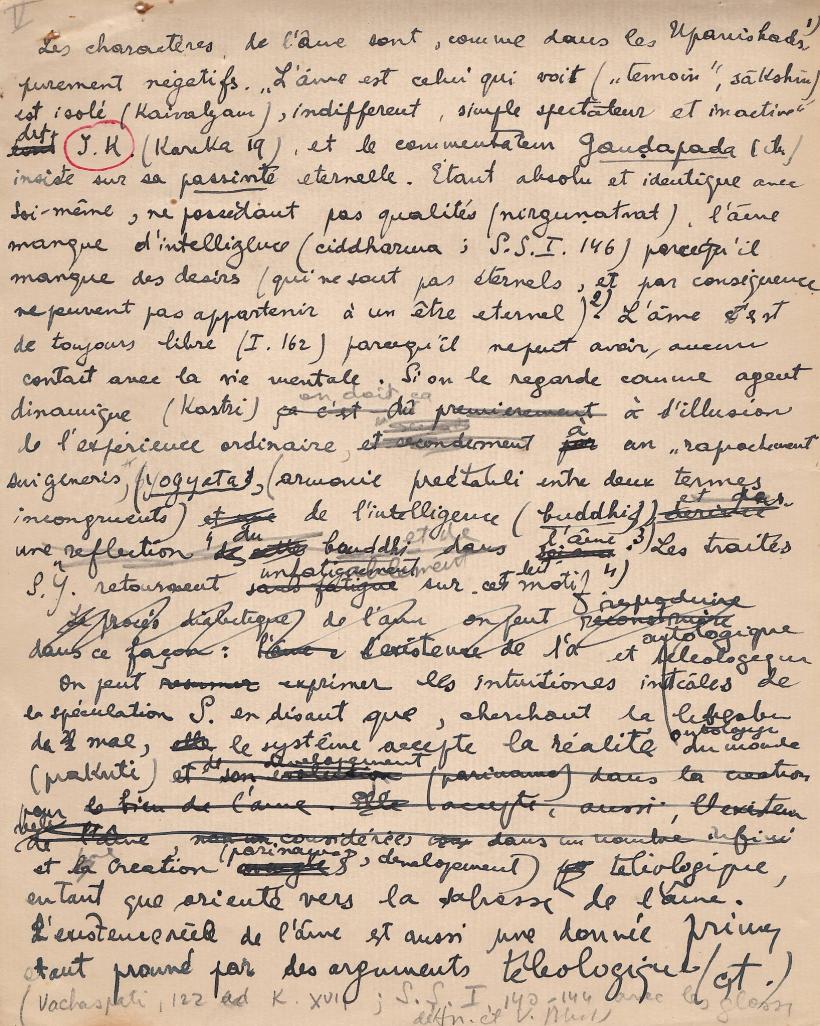 V
Les charactères de l'âme sont, comme dans les Upanishads, 1)
purement négatifs. „L'âme est celui qui voit („temoin", sākshin)
est isolé (Kaivalyam), indifferent, simple spectateur et inactive"
dit I.K. (Karika 19), et le commentateur Gaudapada
insiste sur sa passivité eternelle. Etant absolu et identique avec
soi-même, ne possedant pas qualités (nirgunatvat), l'âme
manque d'intelligence (ciddharma ; S.S.I. 146) parcequ'il
manque des desirs (qui ne sont pas éternels, et par conséquence
ne peuvent pas appartenir à un être eternel) 2). L'âme est
de toujours libre (I. 162) parcequ'il ne peut avoir aucun
contact avec la vie mentale. Si on le regarde comme agent
on doit ça
dinamique (Kastri) ça c'est dû premierement à l'illusion
de l'expérience ordinaire, et secondement par à un „raprochement"
sui generis, (yogyata), (armonie prectabli entre deux termes
incongruents) et une de l'intelligence (buddhi), derivée
une reflection du bouddhi dans l'âme 3) Les traités
infatigablement
S.Y. retournent sans fatigue sur cet motif 4)
reproduire
procés dialectique de l'âme on peut reconstruire
dans ce façon : l'existence de l'a et téleologique
ontologique
On peut resumer exprimer les intuitiones initiales de
la spéculation S. en disant que, cherchant la
de mal, le système accepte la réalité ontologique du monde
developpement
(prakriti) et son evolution (pariname) dans la creation
pour le bien de l'âme. Elle accepte, aussi, l'existence
de l'âme, considérée dans un nombre infini
et la creation (pariname, development) téléologique,
en tant que orienté vers la de l'âme.
L'existence réelle de l'âme et aussi une donnée prime,
etant prouvé par des arguments téleologique (cf.)
(Vachaspati, 122 ad K. XVII ; S.S. I, 140-144 avec les gloses
de et V. Bhat)